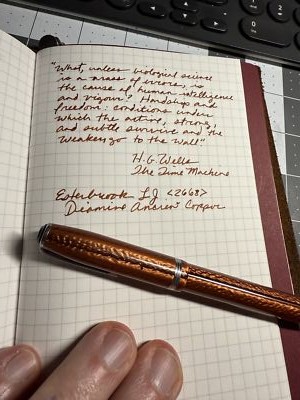 "What, unless biological science
is a mass of errors, is
the cause of human intelligence
and vigour? Hardship and
freedom: conditions under
which the active, strong,
and subtle survive and the
weaker go to the wall"
H. G. Wells
The Time Machine
Esterbrook LJ <2668>
Diamine Ancient Copper